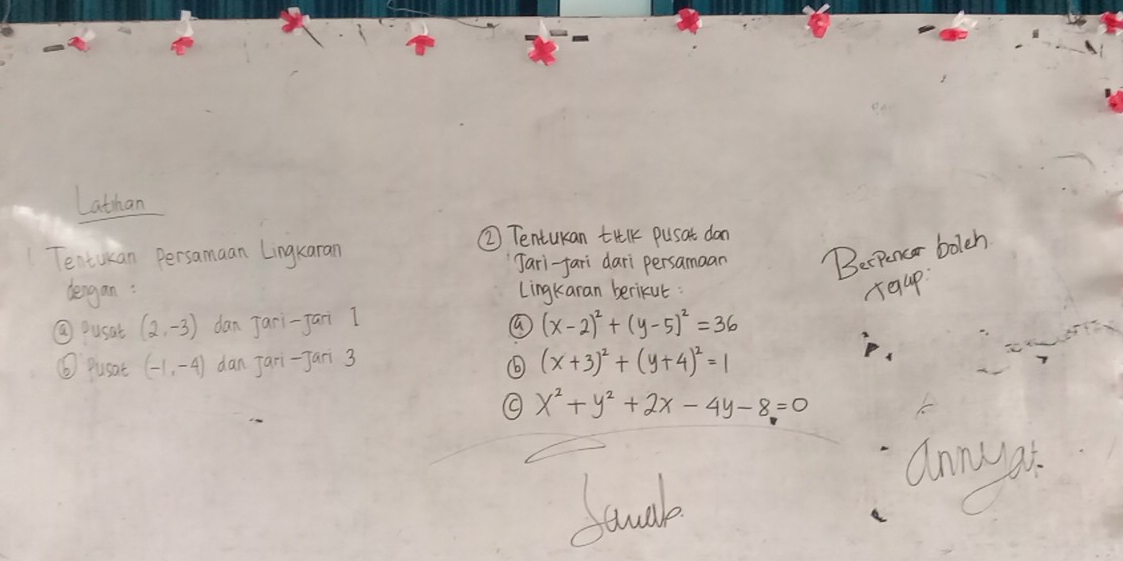 Latihan
1 Tentukan Persamaan Lingkaran
dengan :
ⓐ Pusat (2,-3) dan Jari-Jari 1
ⓑ Pusat (-1,-4) dan Jari-Jari 3
② Tentukan titik pusat dan
Jari-jari dari persamaan
Lingkaran berikut :
ⓐ (x-2)² + (y-5)² = 36
ⓑ (x+3)² + (y+4)² = 1
ⓒ x² + y² + 2x - 4y - 8 = 0
Jawab.
Berpencar boleh.